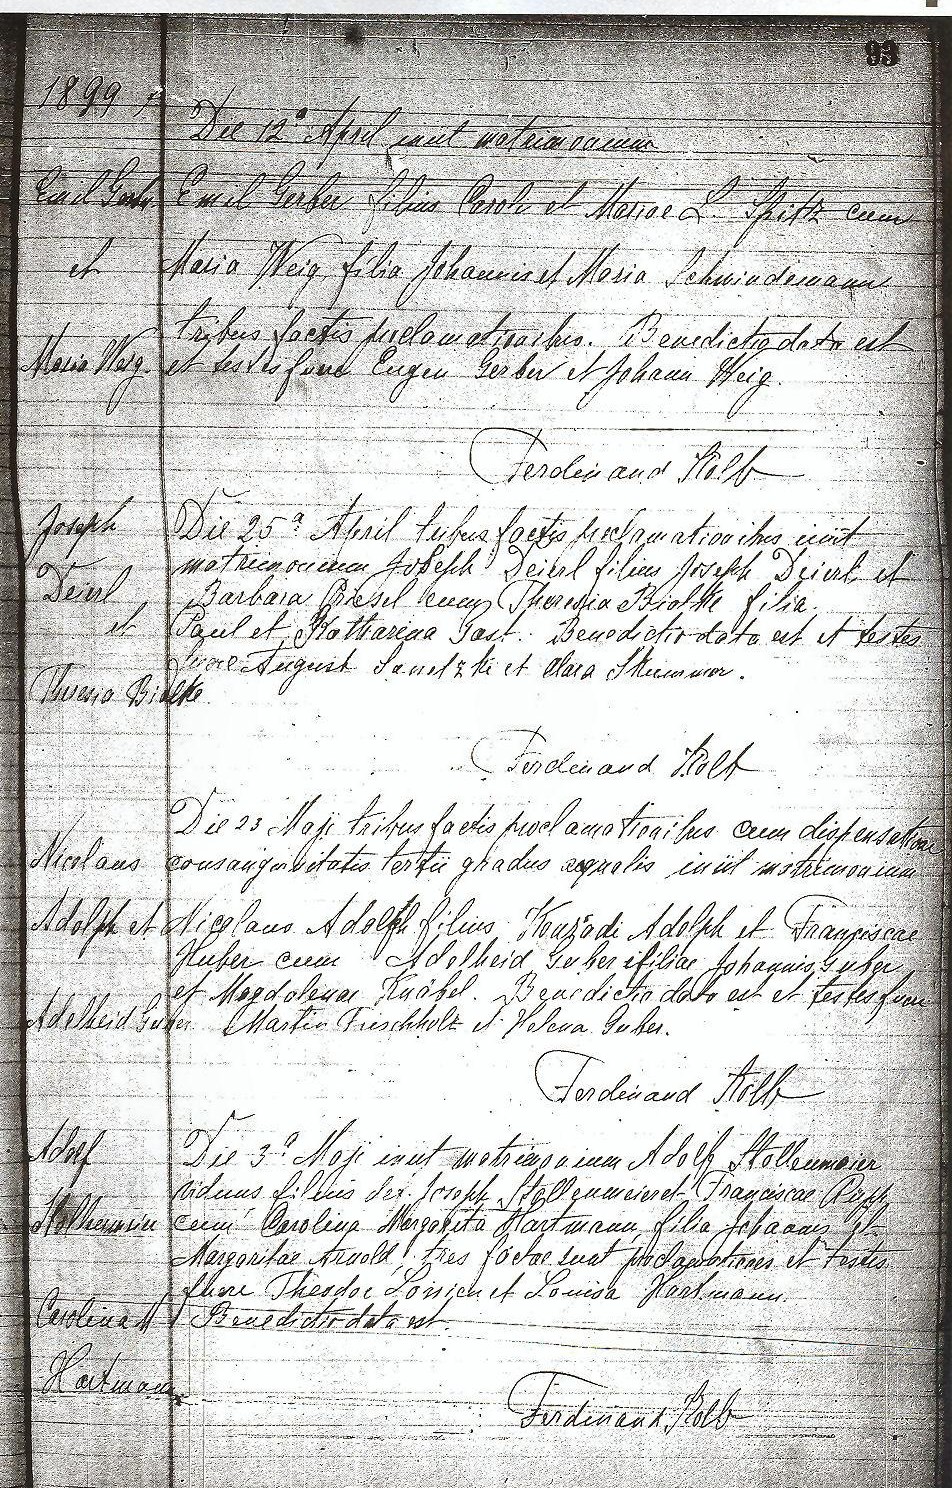 93
1899
Die 12a April init matrimonium
Emil Gerber Emil Gerber filius Caroli et Mariae L. Spitz cum
et Maria Weig filia Johannis et Maria Schwindemann
tribus factis proclamationibus. Benedictio data est
Maria Weig. et testes fuere Eugen Gerber et Johann Weig.
Ferdinand Kolb
Joseph Die 25a April tribus factis proclamationibus iniit
matrimonium Joseph Deierl filius Joseph Deierl et
Deierl Barbara cum Theresia Bialke filia
et Paul et Katharina Gast. Benedictio data est et testes
fuere August et Clara
Theresia Bialke
Ferdinand Kolb
Die 23 Maji tribus factis proclamationibus cum dispensatione
Nicolaus consanguinitatis tertii gradus aequalis iniit matrimonium
Adolph et Nicolaus Adolph filius Konradi Adolph et Franziscae
Huber cum Adelheid Guber filiae Johannis Guber
et Magdalenae Knäbel. Benedictio data est et testes fuere
Adelheid Guber Martin et Helena Guber.
Ferdinand Kolb
Adolf Die 3a Maji iniit matrimonium Adolf Stollenmaier
viduus filius Joseph Stollenmeier et Franciscae Rapp
cum Carolina Margarita Hartmann, filia Johannis et
Margaritae Arnold, tres factae sunt proclamationes et testes
fuere Theodor et Louisa Hartmann.
Carolina M Benedictio data est.
Hartmann
Ferdinand Kolb